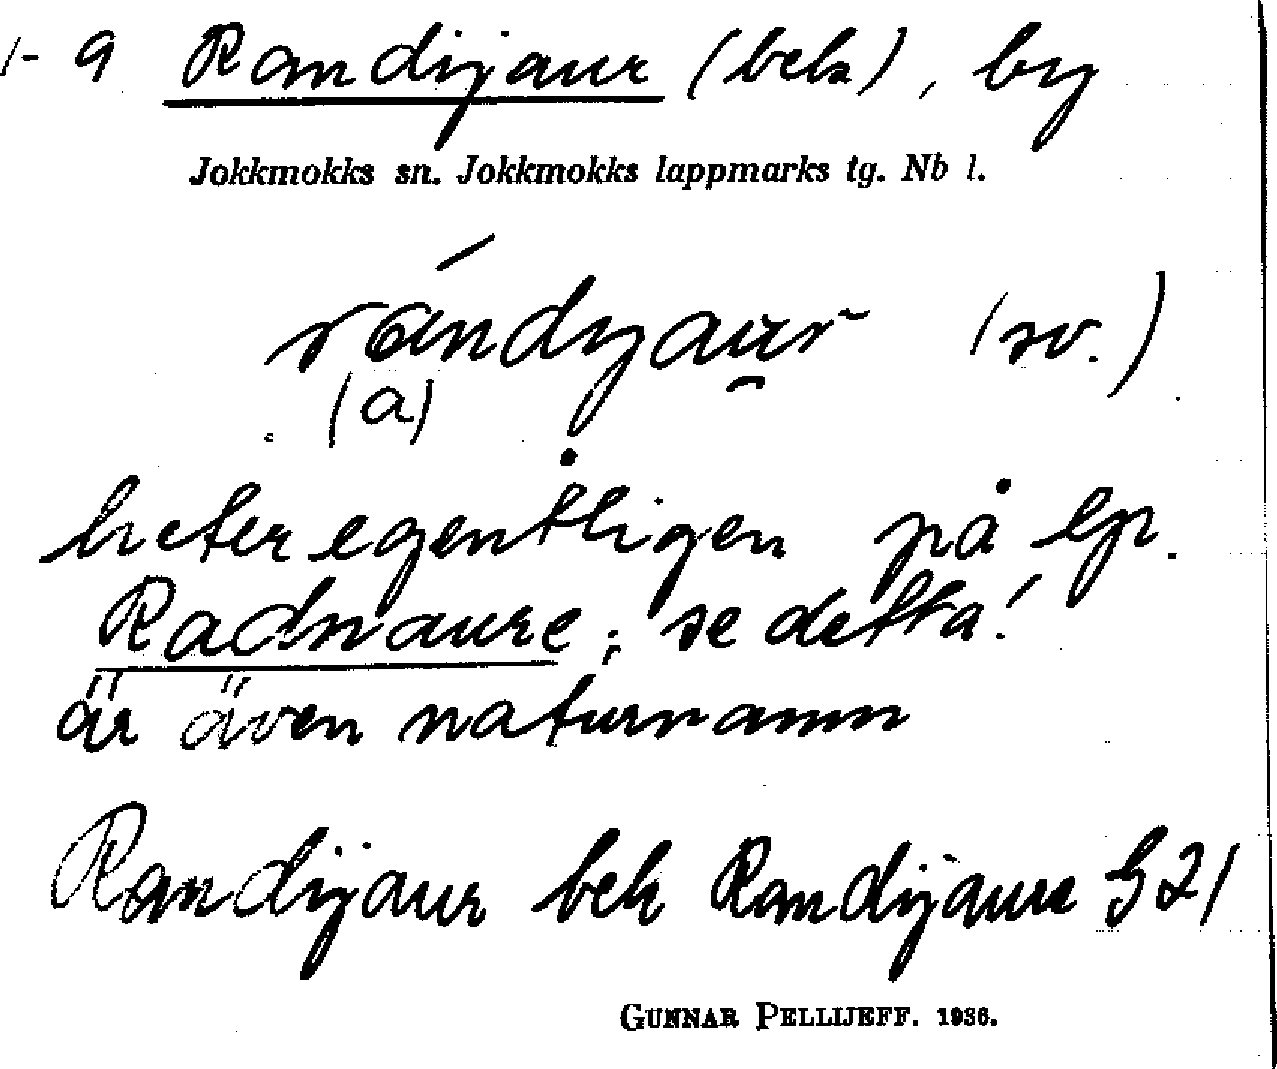 1-9 Randijaur (bek), by
Jokkmokks sn. Jokkmokks lappmarks tg. Nb l.
rándijaur (sv.)
(a)
heter egentligen på lp.
Radnaure; se detta!
är även naturnamn
Randijaur bek Randijaure G21
GUNNAR PELLIJEFF. 1936.